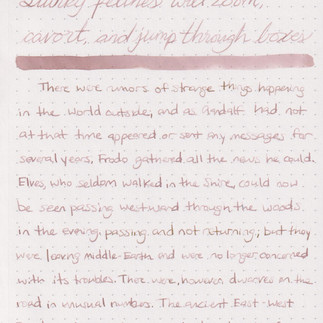 Quirky felines will zoom,
cavort, and jump through boxes
There were rumors of strange things happening
in the world outside, and as Gandalf had not
at that time appeared or sent any messages for
several years, Frodo gathered all the news he could.
Elves, who seldom walked in the Shire, could now
be seen passing westward through the woods
in the evening, passing and not returning; but they
were leaving Middle-Earth and were no longer concerned
with its troubles. There were, however dwarves on the
road in unusual numbers. The ancient East-West